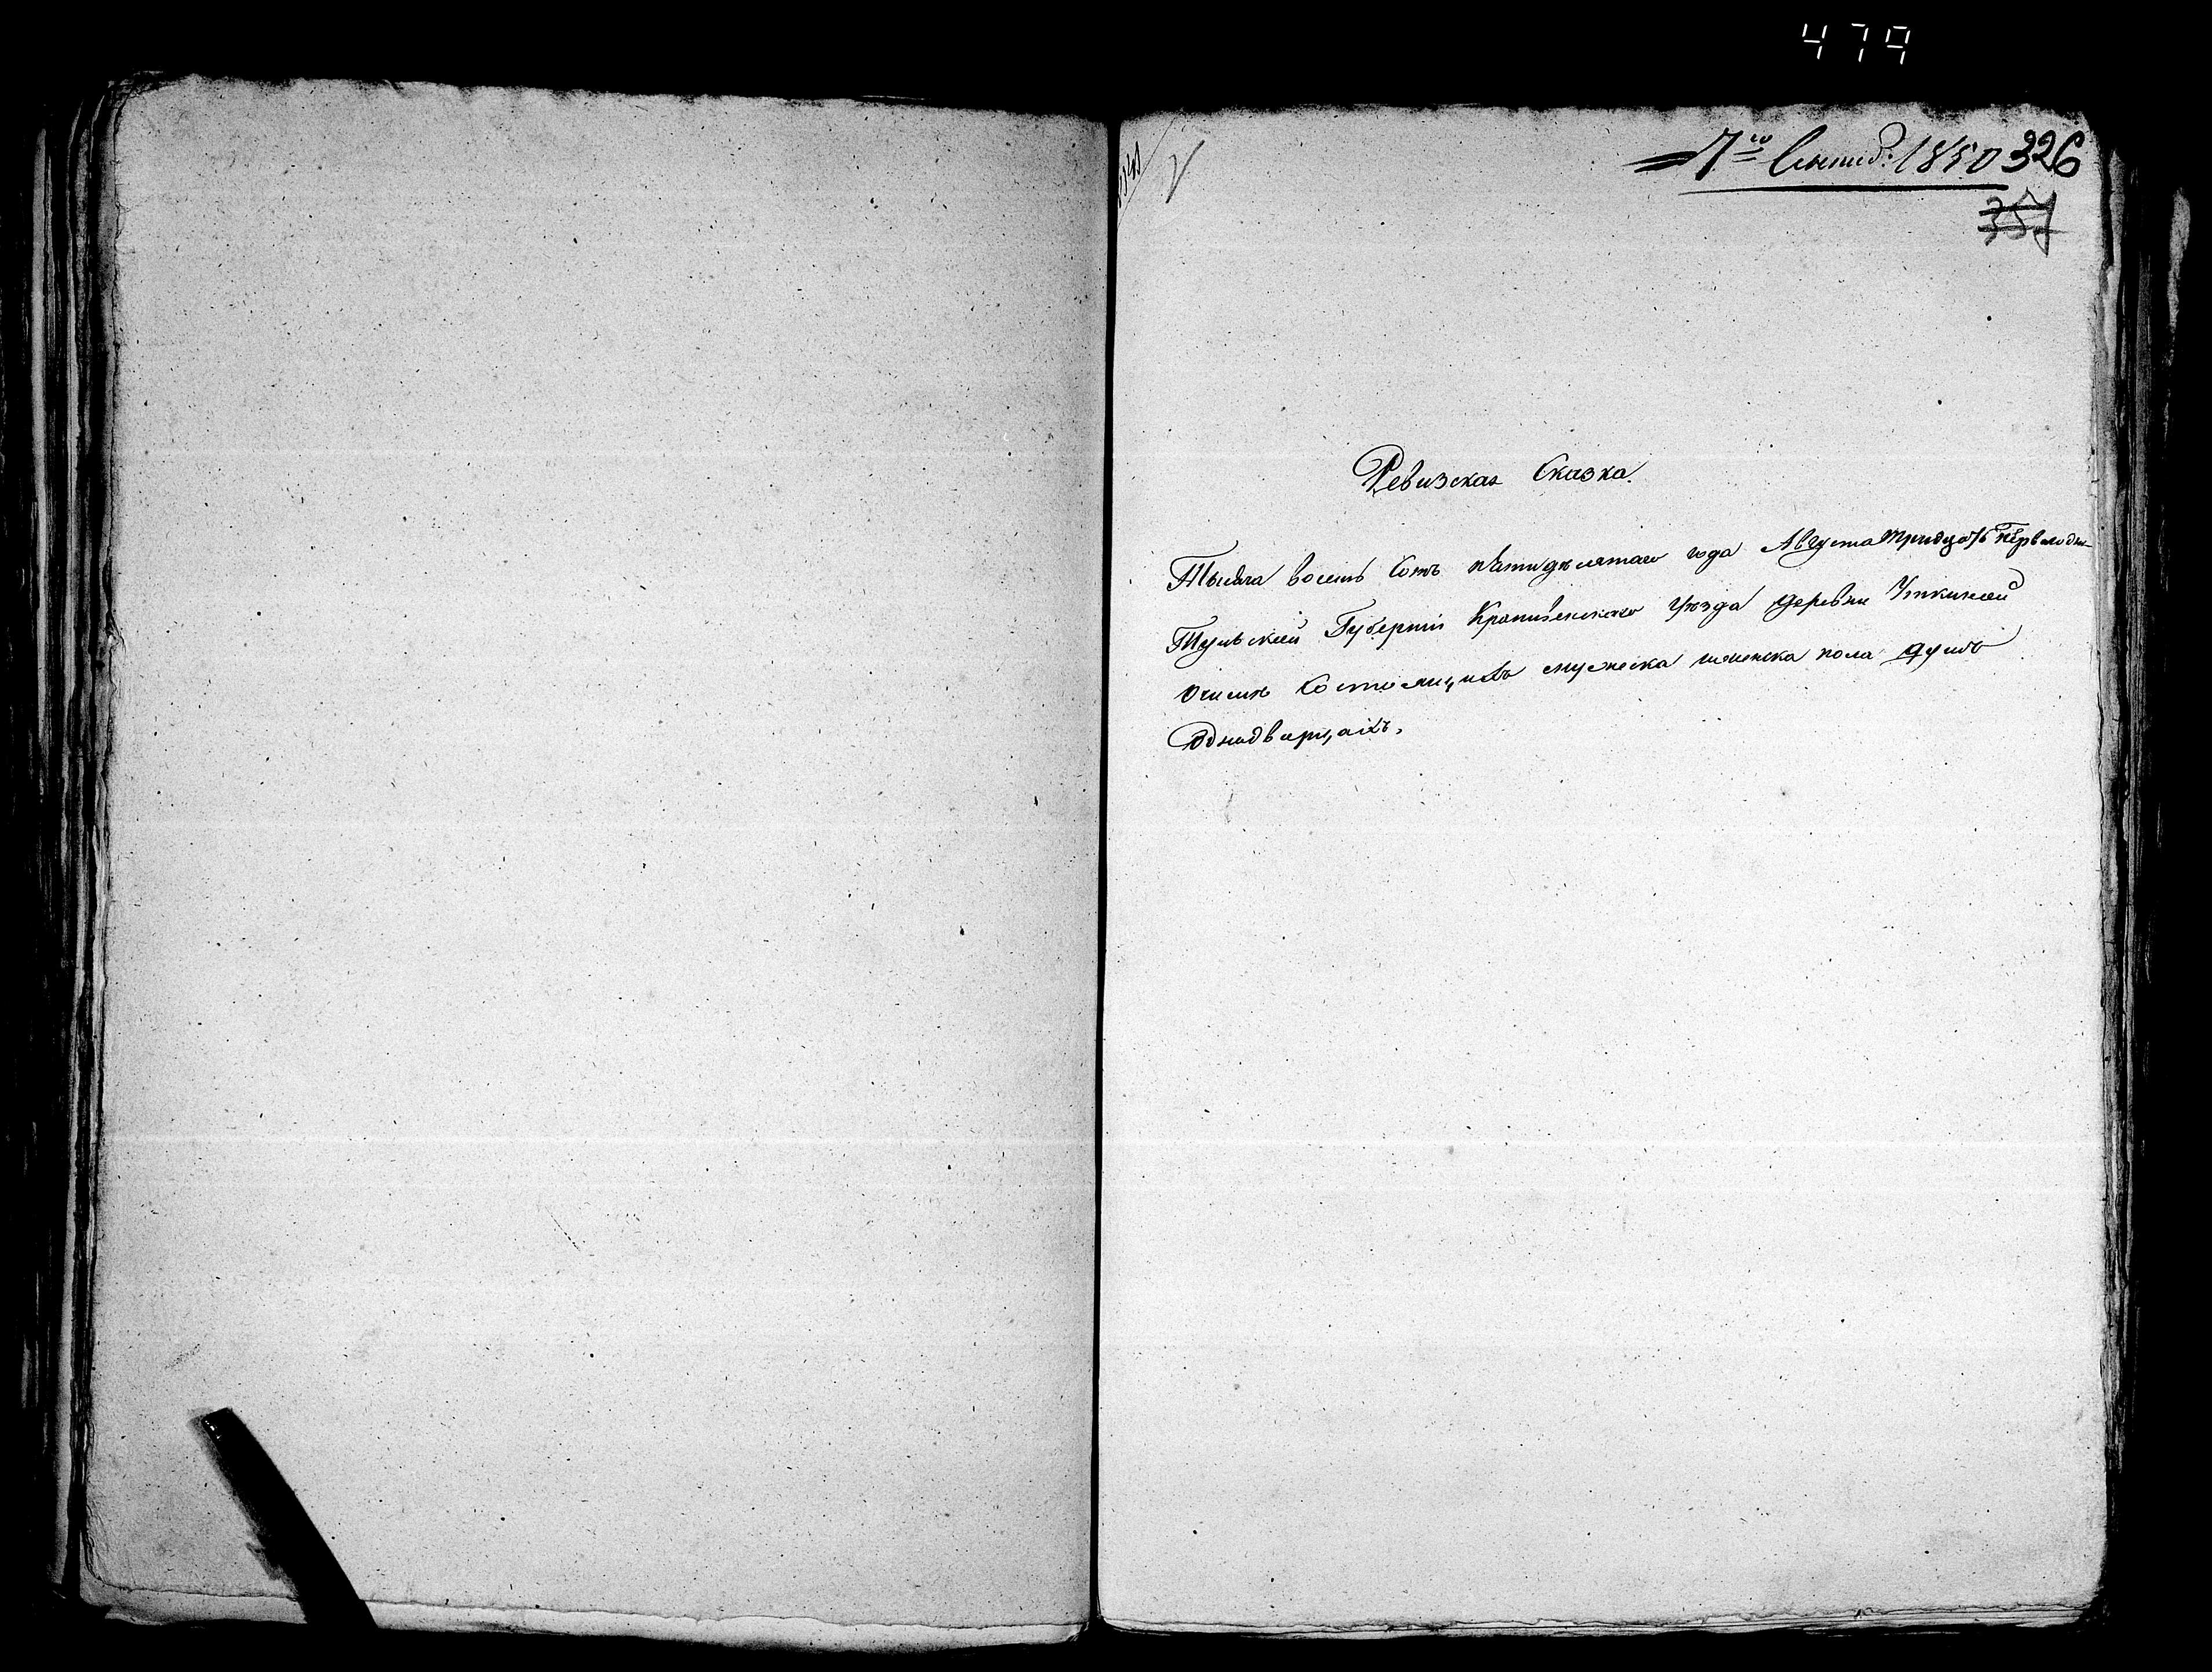 479
7го Сентяб: 1850 326
357
Ревизская Сказка.
Тысяча восемь Сотъ пѣтидѣсятаго года Августа тридцать перваго дня
Тульской Губерніи Крапивенскаго Уѣзда деревни Уткиной
очислѣ Состоящихъ мужеска иженска пола душъ
Однодворцахъ.